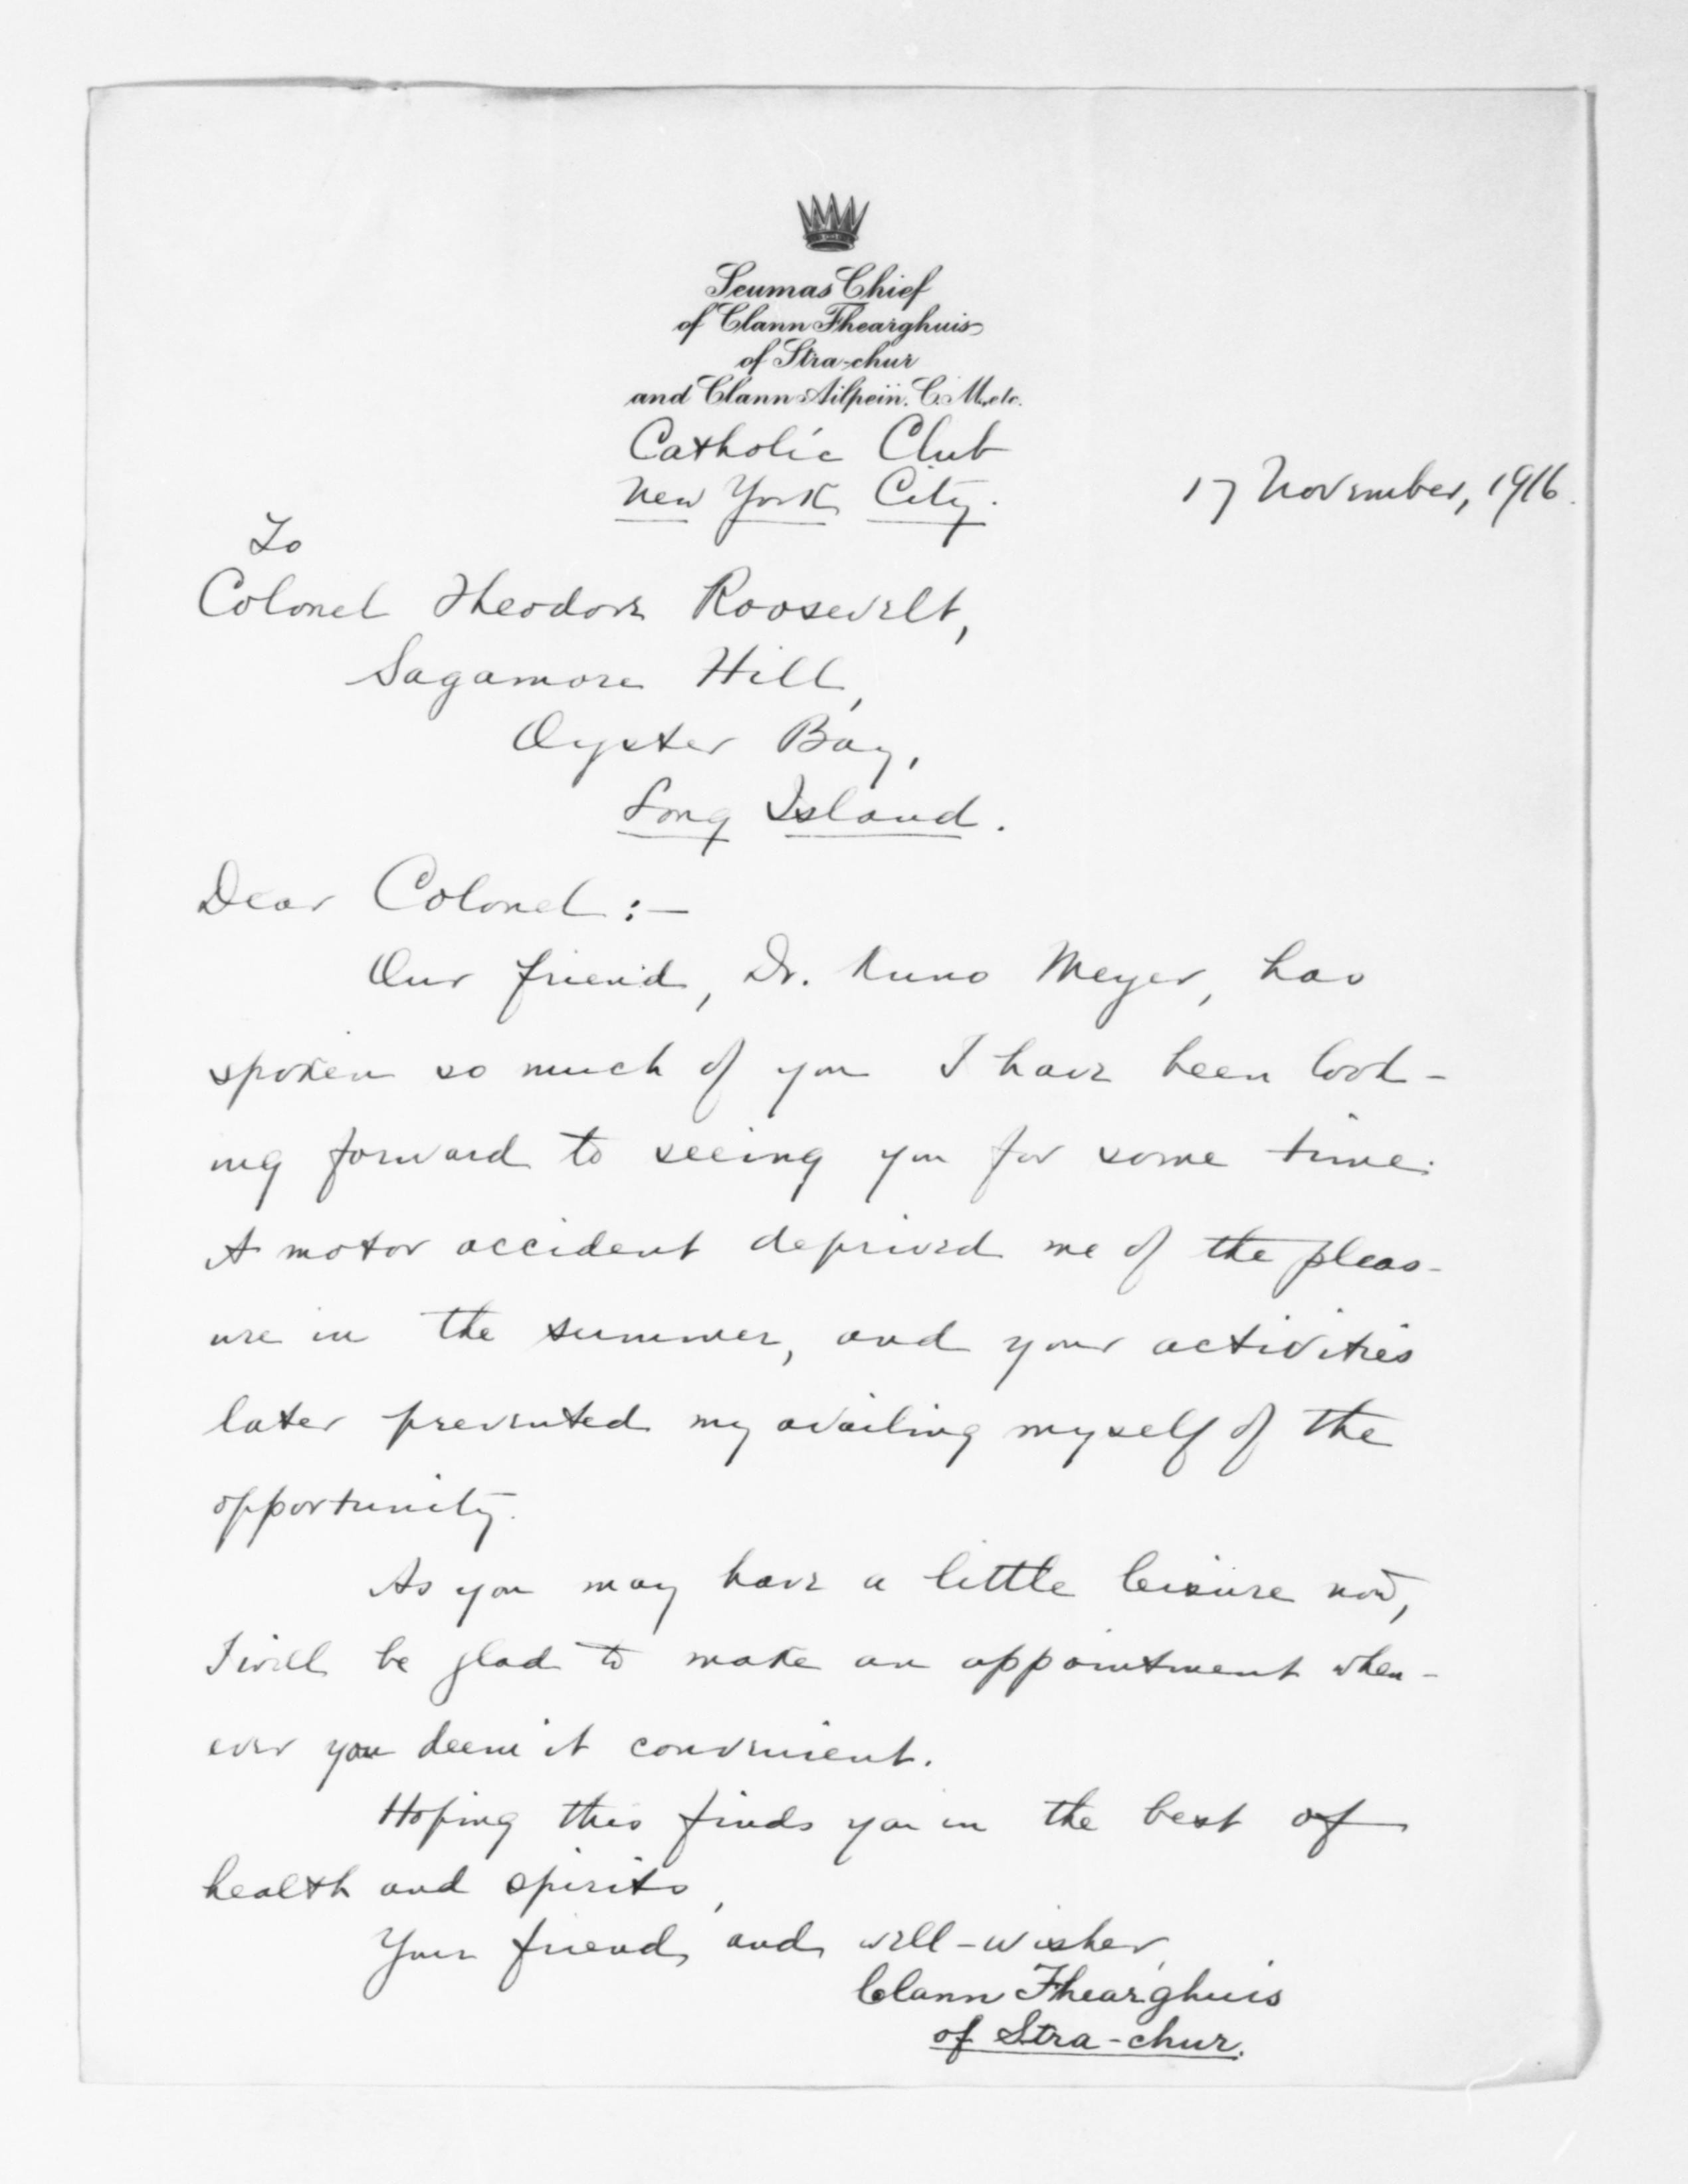 Seumas Chief
of Clann Fhearghuis
of Stra-chur
and Clann Ailpein. C.M., etc.
Catholic Club
New York City.
17 November, 1916.
To
Colonel Theodore Roosevelt,
Sagamore Hill,
Oyster Bay,
Long Island.
Dear Colonel:-
Our friend, Dr. Kuno Meyer, has
spoken so much of you I have been look-
ing forward to seeing you for some time.
A motor accident deprived me of the pleas-
ure in the summer, and your activities
later prevented my availing myself of the
opportunity.
As you may have a little leisure now,
I will be glad to make an appointment when-
ever you deem it convenient.
Hoping this finds you in the best of
health and spirits,
Your friend and well-wisher,
Clann Fhearghuis
of Stra-chur.